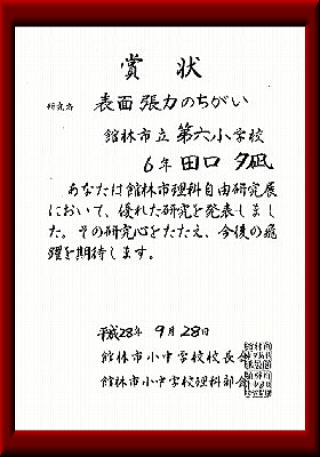 賞状
研究名 表面張力のちがい
館林市立第六小学校
6年 田口 夕凪
あなたは館林市理科自由研究展
において、優れた研究を発表しまし
た。その研究心をたたえ、今後の飛
躍を期待します。
平成28年 9月28日
館林市小中学校校長会
館林市小中学校理科部会